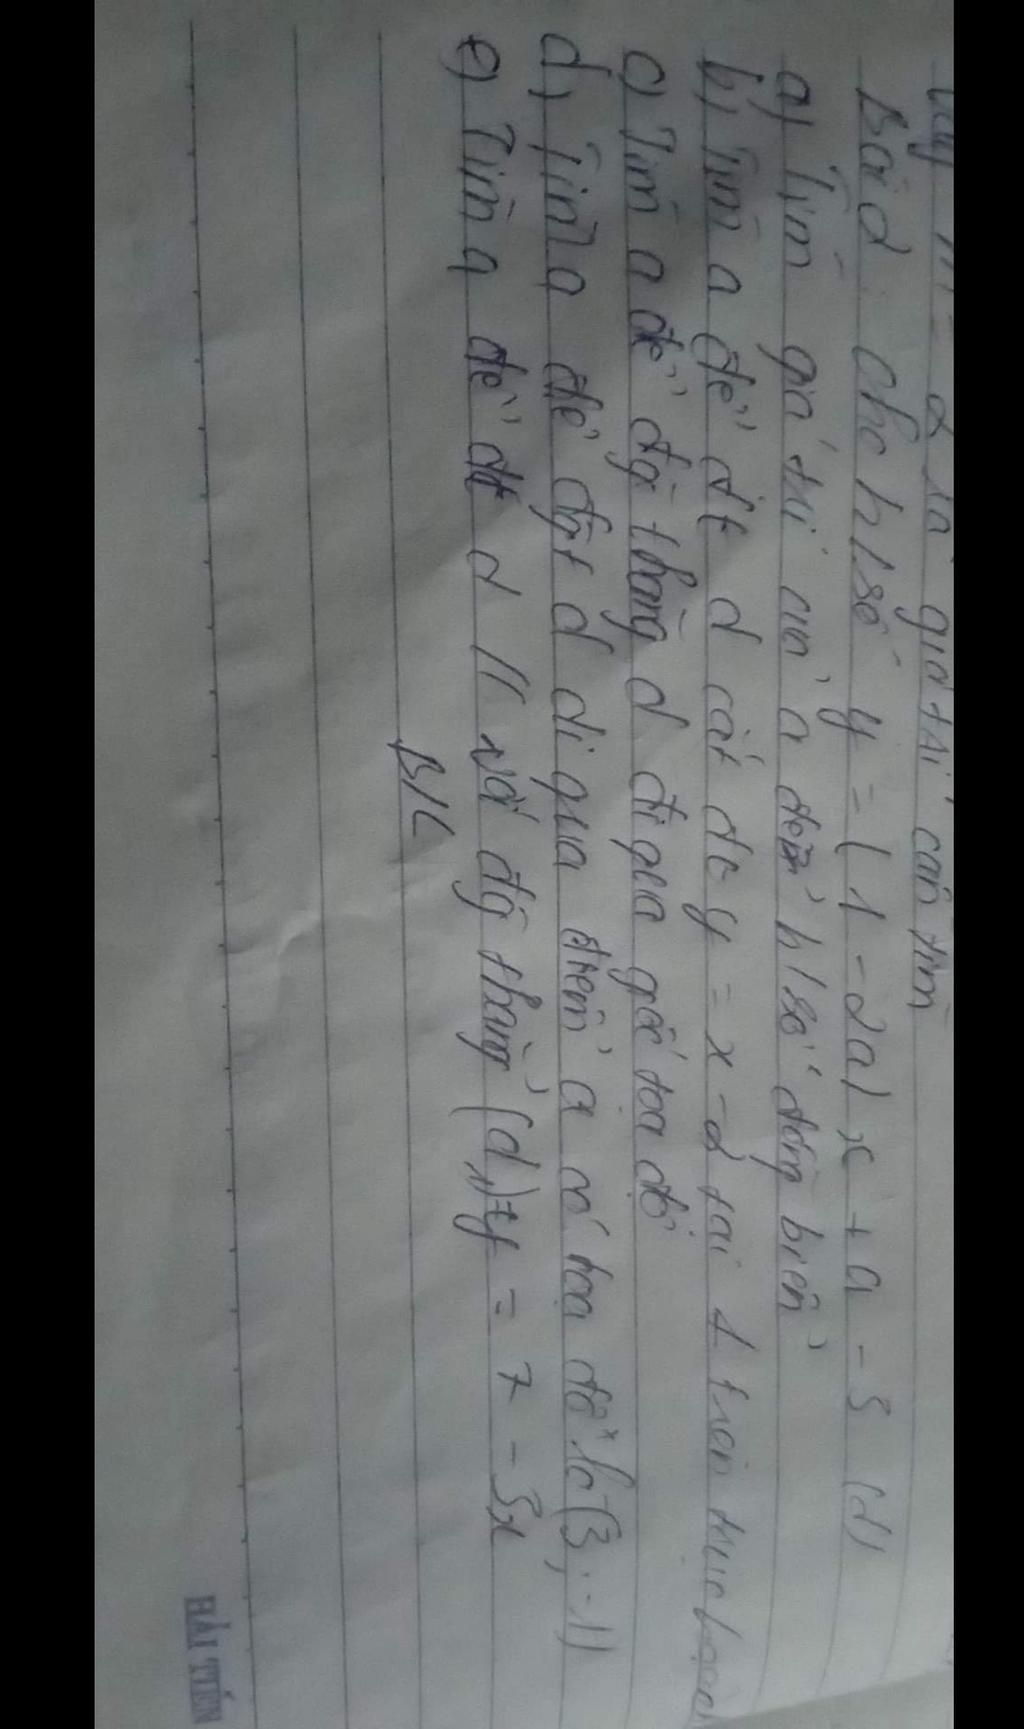 giá trị cần tìm
Bài 2 cho h/số y = (1 - 2a) x + a - 3 (d)
a) Tìm giá trị của a để h/số đồng biến
b) Tìm a để đt d cắt đt y = x - 2 tại 1 trên trục hoành
c) Tìm a để đg thẳng d đi qua gốc toạ độ
d) Tìm a để đgt d đi qua điểm a có toạ độ là (3; -1)
e) Tìm a để đt d // với đg thẳng (d1) : y = 7 - 3x
B/L
HẢI TIẾN